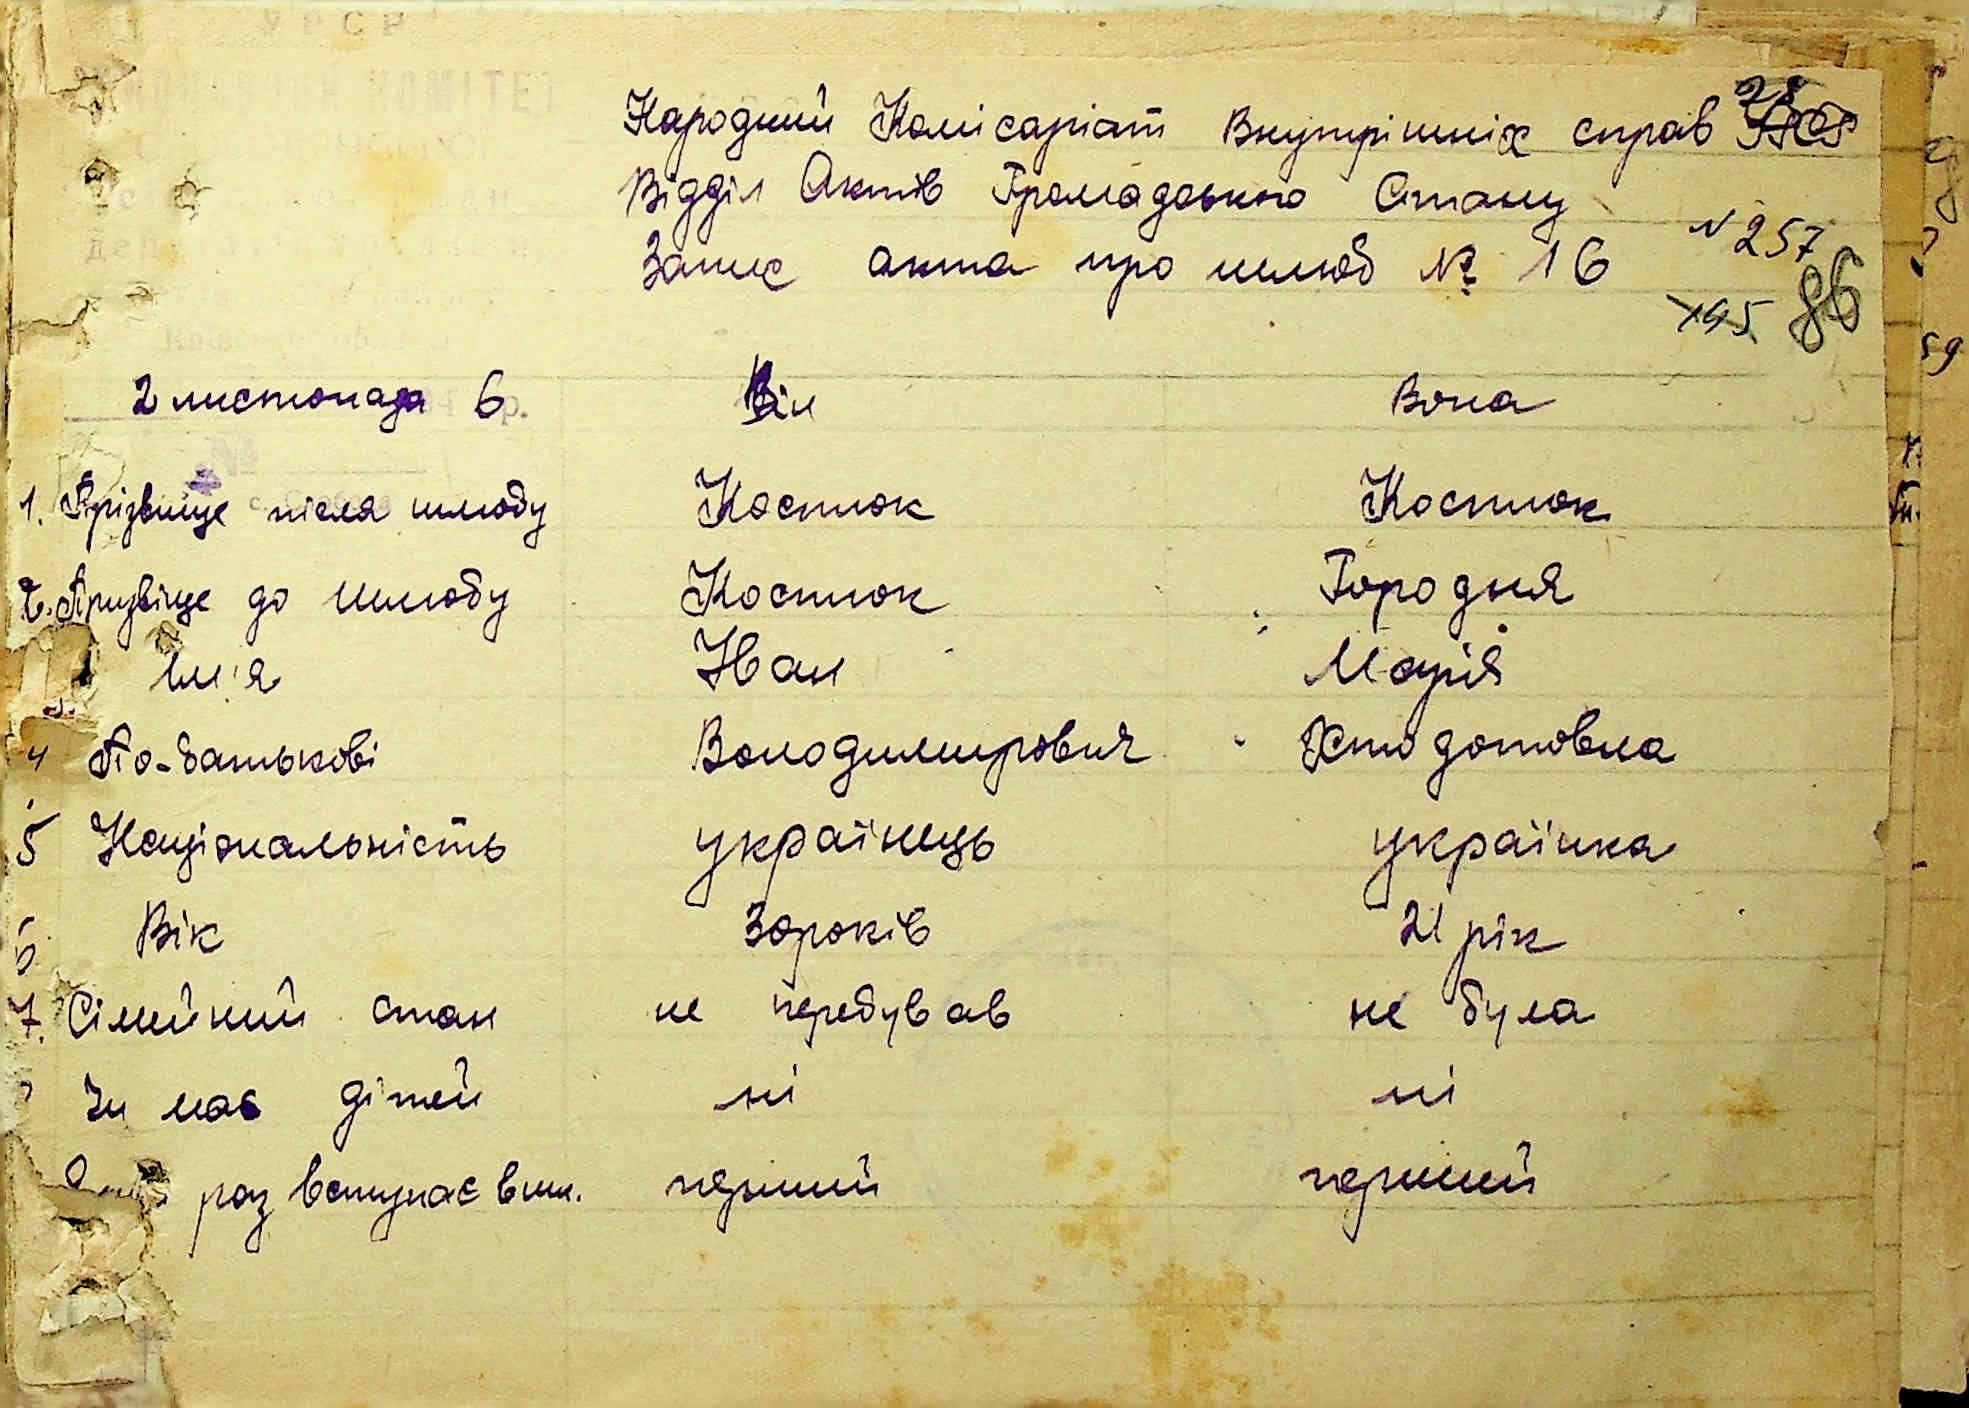 Народний Комісаріат Внутрішніх справ
Відділ Актів Громадського Стану
№ 257
Запис акта про шлюб № 16
145 86
2 листопада 6 Він Вона
1. Прізвище після шлюбу Костюк Костюк
2. Призвіще до шлюбу Костюк Городня
Ім'я Иван Марія
4 По-батькові Володимирович
5 Національність українець українка
6 Вік 30 років 21 рік
7. Сімейний стан не перебував не була
Чи має дітей ні ні
раз вступає в шл. перший перший